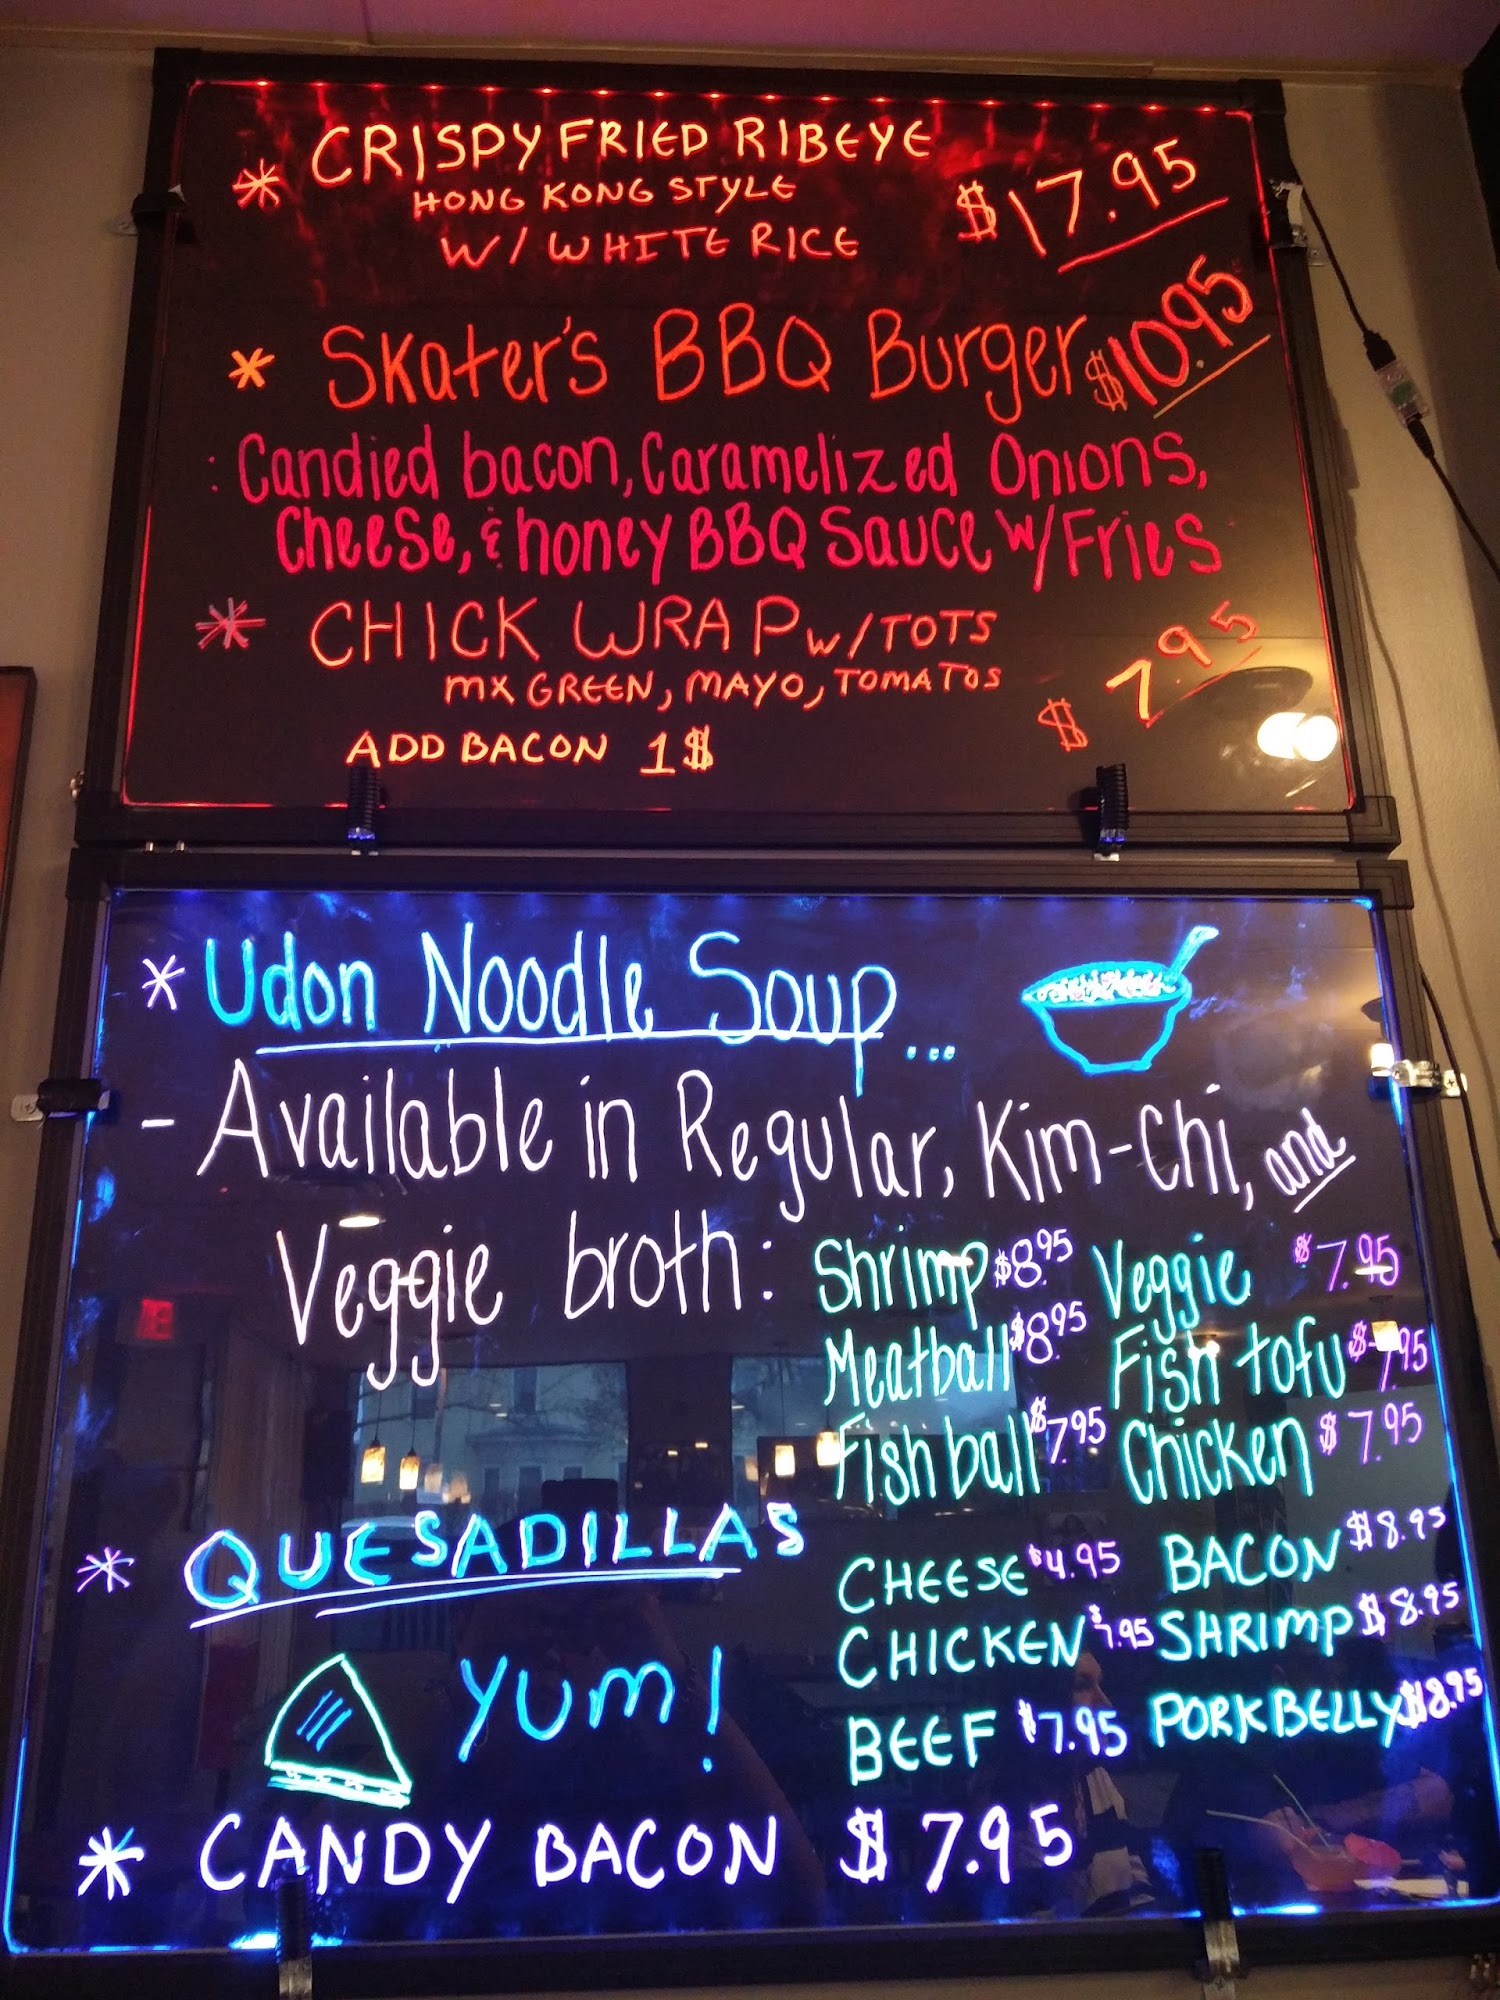 * CRISPY FRIED RIBEYE $17.95
HONG KONG STYLE
W/ WHITE RICE
* Skater's BBQ Burger $10.95
: Candied bacon, Caramelized Onions,
Cheese, & honey BBQ Sauce w/ Fries
* CHICK WRAP w/ TOTS $7.95
MX GREEN, MAYO, TOMATOS
ADD BACON 1$
* Udon Noodle Soup...
- Available in Regular, Kim-Chi, and
Veggie broth:
Shrimp $8.95 Veggie $7.95
Meatball $8.95 Fish tofu $7.95
Fish ball $7.95 Chicken $7.95
* QUESADILLAS
CHEESE $4.95 BACON $8.95
CHICKEN $7.95 SHRIMP $8.95
BEEF $7.95 PORKBELLY $8.95
YUM!
* CANDY BACON $7.95